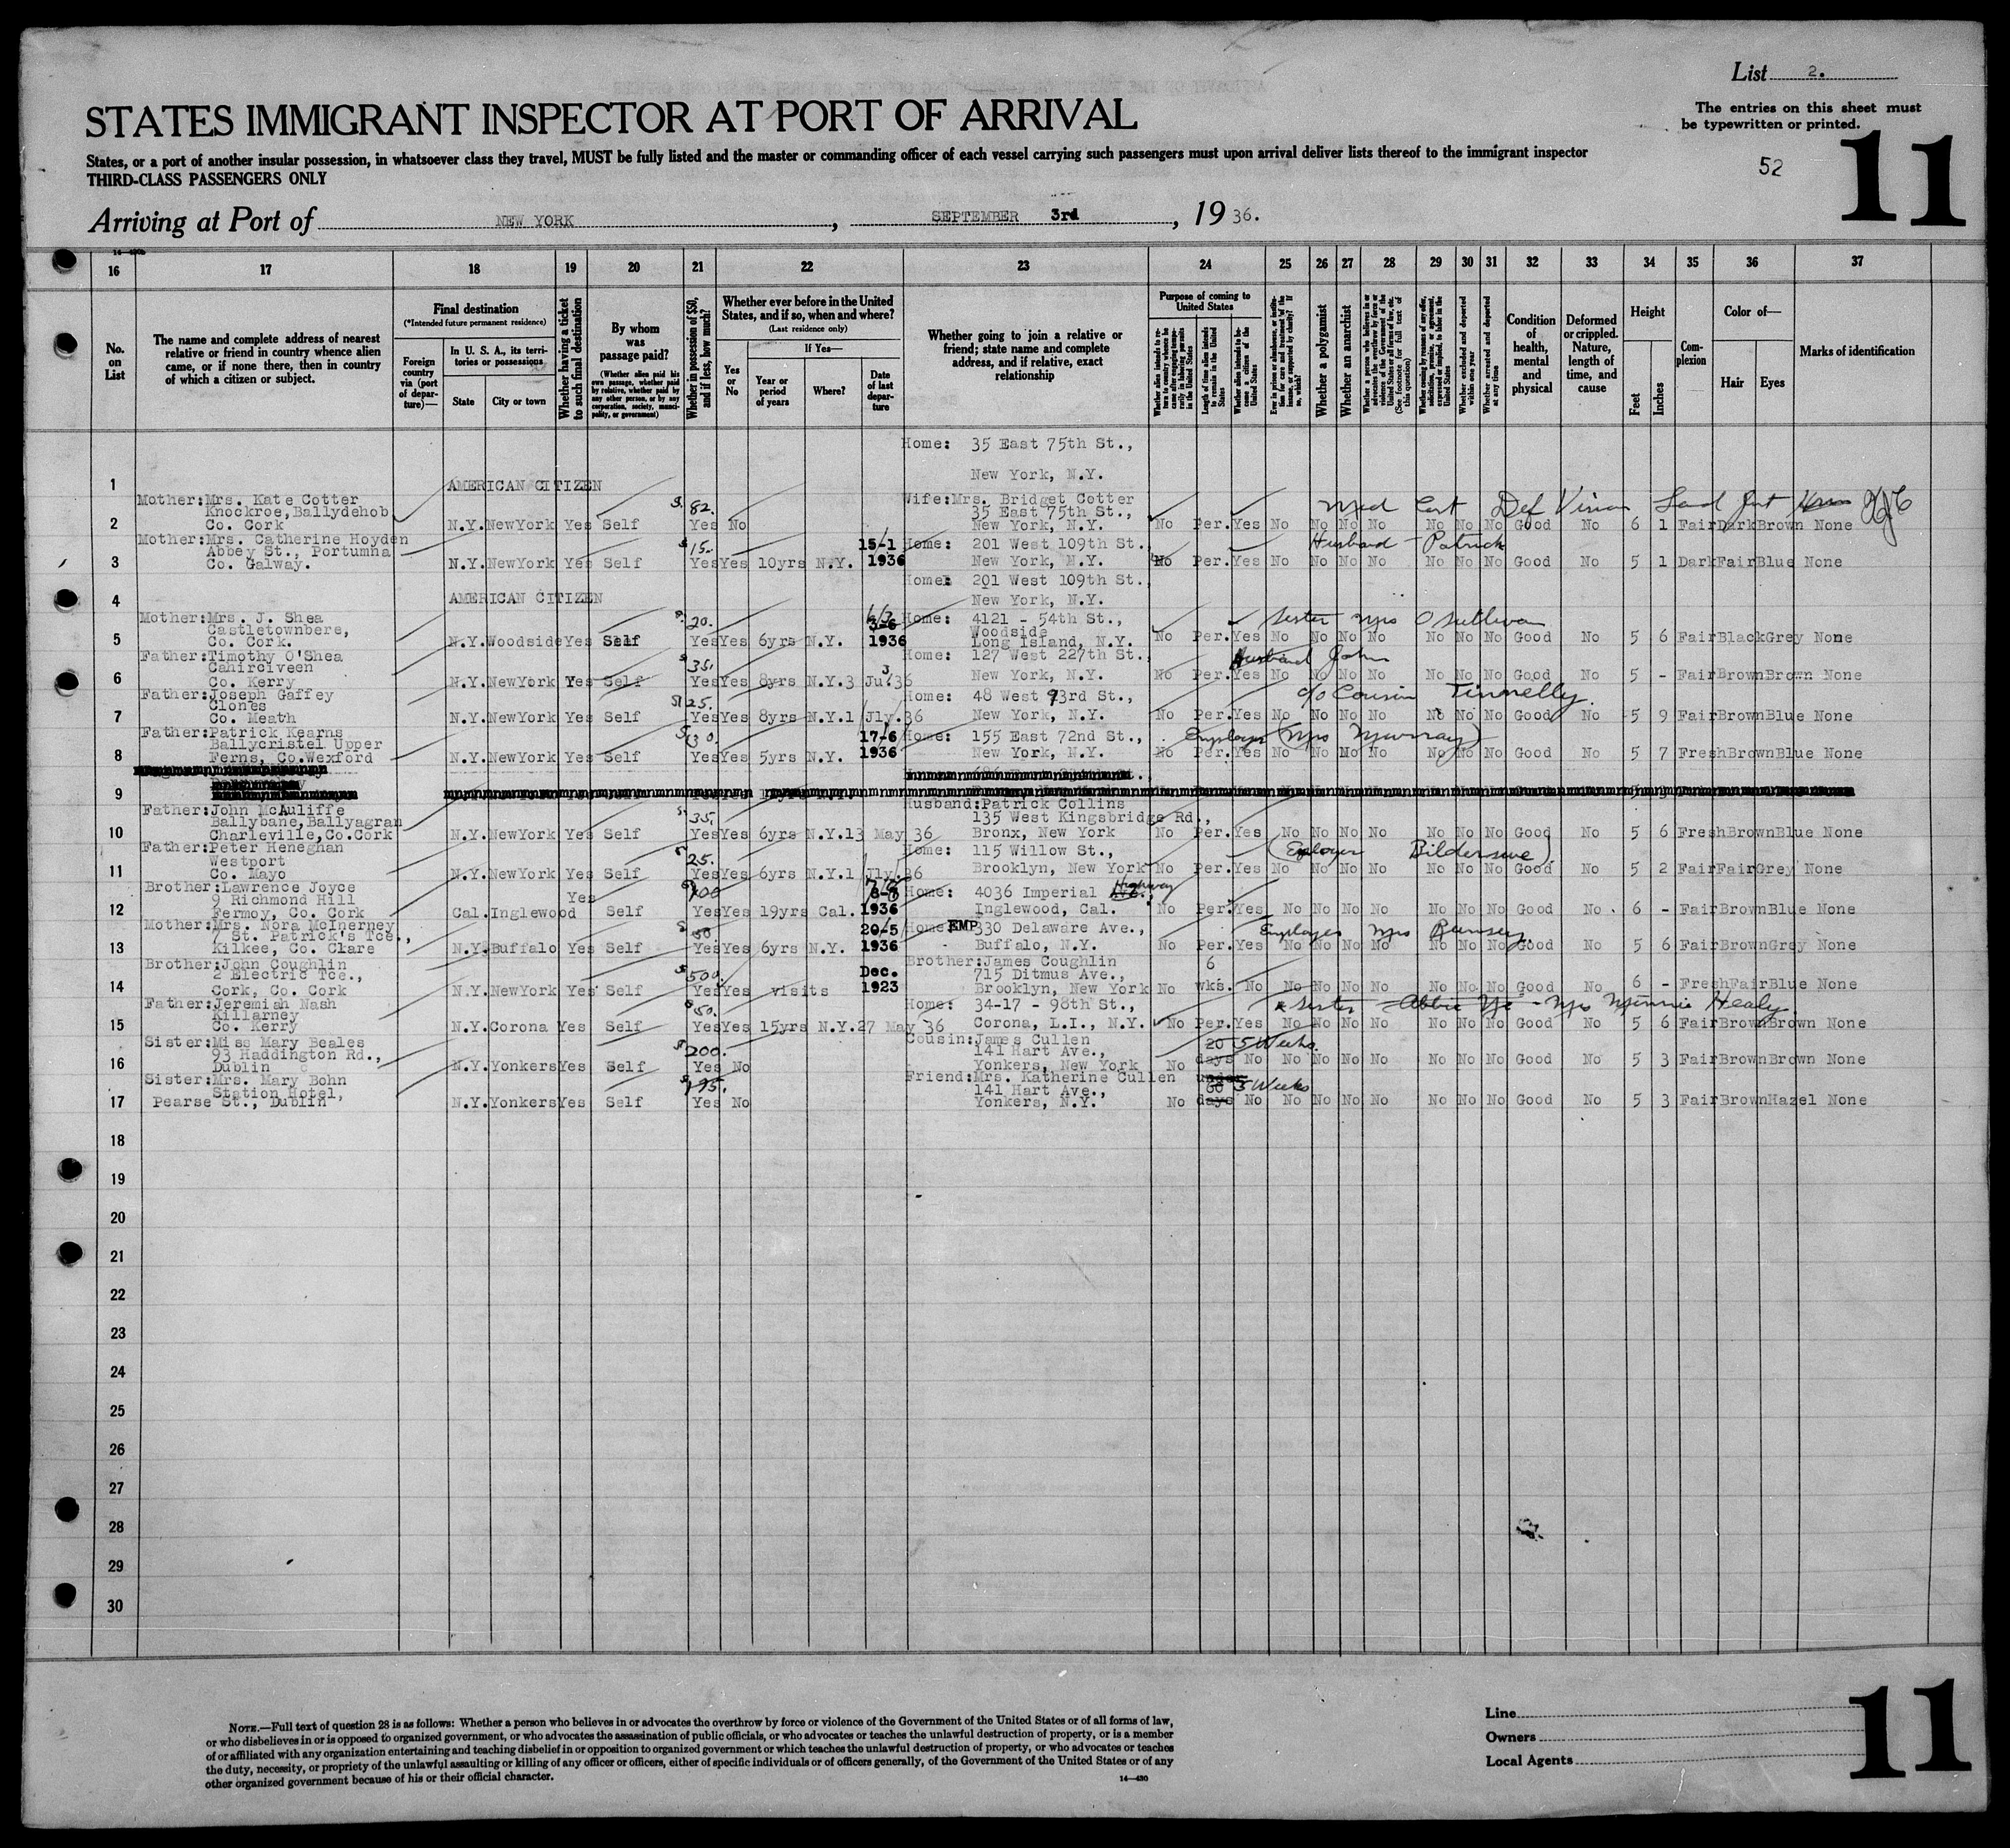 List 2.
The entries on this sheet must
be typewritten or printed.
STATES IMMIGRANT INSPECTOR AT PORT OF ARRIVAL
11
52
States, or a port of another insular possession, in whatsoever class they travel, MUST be fully listed and the master or commanding officer of each vessel carrying such passengers must upon arrival deliver lists thereof to the immigrant inspector
THIRD-CLASS PASSENGERS ONLY
Arriving at Port of NEW YORK, SEPTEMBER 3rd, 1936.
16 17 18 19 20 21 22 23 24 25 26 27 28 29 30 31 32 33 34 35 36 37
No. on List
The name and complete address of nearest relative or friend in country whence alien came, or if none there, then in country of which a citizen or subject.
Final destination
(*Intended future permanent residence)
Foreign country via (port of departure)—
In U. S. A., its territories or possessions
State
City or town
Whether having a ticket to such final destination
By whom was passage paid?
(Whether alien paid his own passage, whether paid by relative, whether paid by any other person, or by any corporation, society, municipality, or government)
Whether in possession of $50, and if less, how much?
Whether ever before in the United States, and if so, when and where?
(Last residence only)
Yes or No
If Yes—
Year or period of years
Where?
Date of last departure
Whether going to join a relative or friend; state name and complete address, and if relative, exact relationship
Purpose of coming to United States
Length of time alien intends to remain in the United States
Whether alien intends to become a citizen of the United States
Whether a polygamist
Whether an anarchist
Whether excluded and deported within one year
Whether arrested and deported at any time
Condition of health, mental and physical
Deformed or crippled. Nature, length of time, and cause
Height
Feet
Inches
Complexion
Color of—
Hair
Eyes
Marks of identification
Home: 35 East 75th St.,
New York, N.Y.
1 AMERICAN CITIZEN
Mother:Mrs. Kate Cotter $82. Wife:Mrs. Bridget Cotter
Knockroe,Ballydehob 35 East 75th St., Med Cert Def Vision
2 Co. Cork N.Y. NewYork Yes Self Yes No New York, N.Y. No Per. Yes No No No No No No No Good No 6 1 Fair Dark Brown None
Mother:Mrs. Catherine Hoyden
Abbey St., Portumna $15. 15-1 Home: 201 West 109th St., Husband - Patrick
3 Co. Galway. N.Y. NewYork Yes Self Yes Yes 10yrs N.Y. 1936 New York, N.Y. No Per. Yes No No No No No No No Good No 5 1 Dark Fair Blue None
Home: 201 West 109th St.,
4 AMERICAN CITIZEN New York, N.Y.
Mother:Mrs. J. Shea $20. Home: 4121 - 54th St., Sister Mrs O Sullivan
Castletownbere, 3-6 Woodside
5 Co. Cork. N.Y. Woodside Yes Self Yes Yes 6yrs N.Y. 1936 Long Island, N.Y. No Per. Yes No No No No No No No Good No 5 6 Fair Black Grey None
Father:Timothy O'Shea Home: 127 West 227th St., Husband John
Cahirciveen $35.
6 Co. Kerry N.Y. NewYork Yes Self Yes Yes 8yrs N.Y. 3 Ju. 36 New York, N.Y. No Per. Yes No No No No No No No Good No 5 - Fair Brown Brown None
Father:Joseph Gaffey $25. Home: 48 West 93rd St., c/o Cousin Tinnelly.
Clones
7 Co. Meath N.Y. NewYork Yes Self Yes Yes 8yrs N.Y. 1 Jly. 36 New York, N.Y. No Per. Yes No No No No No No No Good No 5 9 Fair Brown Blue None
Father:Patrick Kearns
Ballycristel Upper $30. 17-6 Home: 155 East 72nd St., Employer (Mrs Murray)
8 Ferns, Co.Wexford N.Y. NewYork Yes Self Yes Yes 5yrs N.Y. 1936 New York, N.Y. No Per. Yes No No No No No No No Good No 5 7 Fresh Brown Blue None
9
Father:John McAuliffe Husband:Patrick Collins
Ballybane,Ballyagran $35. 135 West Kingsbridge Rd.,
10 Charleville,Co.Cork N.Y. NewYork Yes Self Yes Yes 6yrs N.Y. 13 May 36 Bronx, New York No Per. Yes No No No No No No No Good No 5 6 Fresh Brown Blue None
Father:Peter Heneghan Home: 115 Willow St., (Employer Bildersee).
Westport $25.
11 Co. Mayo N.Y. NewYork Yes Self Yes Yes 6yrs N.Y. 1 Jly. 36 Brooklyn, New York No Per. Yes No No No No No No No Good No 5 2 Fair Fair Grey None
Brother:Lawrence Joyce $100 Highway
9 Richmond Hill Yes Home: 4036 Imperial
12 Fermoy, Co. Cork Cal. Inglewood Self Yes Yes 19yrs Cal. 1936 Inglewood, Cal. No Per. Yes No No No No No No No Good No. 6 - Fair Brown Blue None
Mother:Mrs. Nora McInerney 20-5 Home: EMP 330 Delaware Ave., Employer Mrs Rumsey.
7 St. Patrick's Tce., $50
13 Kilkee, Co. Clare N.Y. Buffalo Yes Self Yes Yes 6yrs N.Y. 1936 Buffalo, N.Y. No Per. Yes No No No No No No No Good No 5 6 Fair Brown Grey None
Brother:John Coughlin Brother:James Coughlin 6
2 Electric Tce., $500. Dec. 715 Ditmus Ave.,
14 Cork, Co. Cork N.Y. NewYork Yes Self Yes Yes visits 1923 Brooklyn, New York No wks. No No No No No No No No Good No 6 - Fresh Fair Blue None
Father:Jeremiah Nash $50. Home: 34-17 - 98th St., Sister Abbie - Mrs Minnie Healy.
Killarney
15 Co. Kerry N.Y. Corona Yes Self Yes Yes 15yrs N.Y. 27 May 36 Corona, L.I., N.Y. No Per. Yes No No No No No No No Good No 5 6 Fair Brown Brown None
Sister:Miss Mary Beales Cousin:James Cullen 20 5 Weeks.
93 Haddington Rd., $200. 141 Hart Ave.,
16 Dublin N.Y. Yonkers Yes Self Yes No Yonkers, New York No days No No No No No No No No Good No 5 3 Fair Brown Brown None
Sister:Mrs. Mary Bohn $195. Friend:Mrs. Katherine Cullen under
Station Hotel, 141 Hart Ave., 60 5 Weeks
17 Pearse St., Dublin N.Y. Yonkers Yes Self Yes No Yonkers, N.Y. No days No No No No No No No No Good No 5 3 Fair Brown Hazel None
18
19
20
21
22
23
24
25
26
27
28
29
30
NOTE.—Full text of question 28 is as follows: Whether a person who believes in or advocates the overthrow by force or violence of the Government of the United States or of all forms of law,
or who disbelieves in or is opposed to organized government, or who advocates the assassination of public officials, or who advocates or teaches the unlawful destruction of property, or is a member
of or affiliated with any organization entertaining and teaching disbelief in or opposition to organized government or which teaches the unlawful destruction of property, or who advocates or teaches
the duty, necessity, or propriety of the unlawful assaulting or killing of any officer or officers, either of specific individuals or of officers generally, of the Government of the United States or of any
other organized government because of his or their official character.
14—430
Line
Owners
Local Agents
11